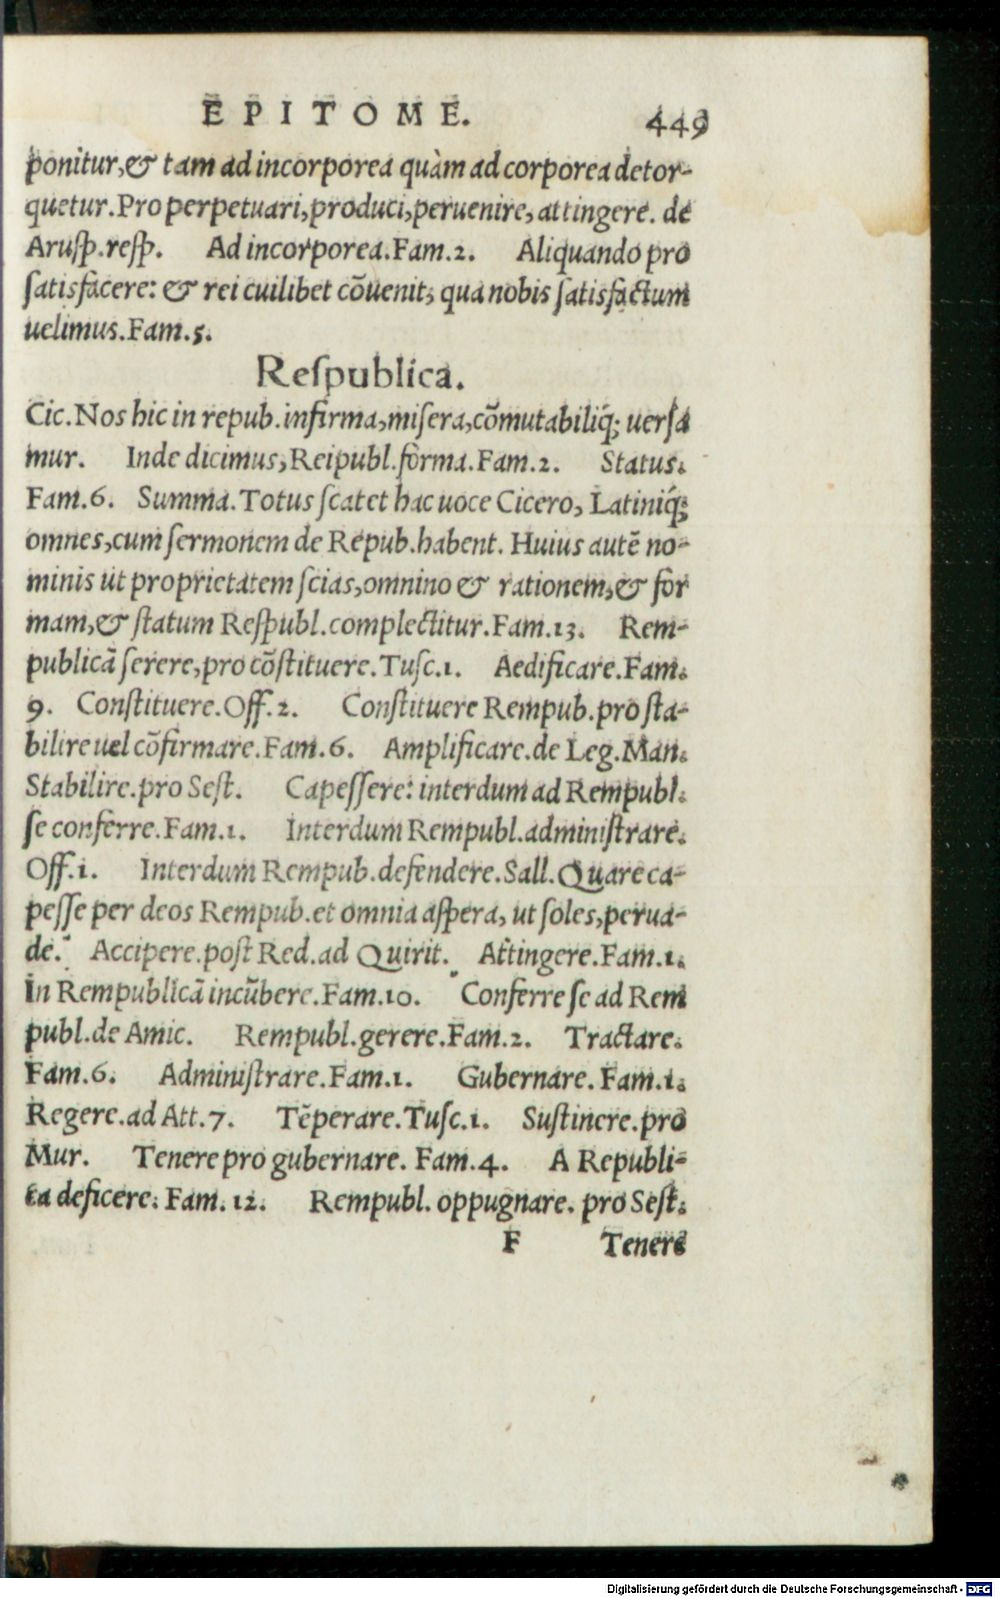 EPITOME. 449
ponitur,& tam ad incorporea quàm ad corporea detor-
quetur.Pro perpetuari,produci,peruenire,attingere. de
Aruſp.reſp. Ad incorporea.Fam.2. Aliquando pro
ſatisfacere: & rei cuilibet cōuenit, qua nobis ſatisfactum
uelimus.Fam.5.
Reſpublica.
Cic.Nos hic in repub.infirma,miſera,cōmutabiliq́; uerſa
mur. Inde dicimus,Reipubl.forma.Fam.2. Status.
Fam.6. Summa.Totus ſcatet hac uoce Cicero, Latiniq́;
omnes,cum ſermonem de Repub.habent. Huius autē no-
minis ut proprietatem ſcias,omnino & rationem,& for
mam,& ſtatum Reſpubl.complectitur.Fam.13. Rem-
publicā ſerere,pro cōſtituere.Tuſc.1. Aedificare.Fam.
9. Conſtituere.Off.2. Conſtituere Rempub.pro ſta-
bilire uel cōfirmare.Fam.6. Amplificare.de Leg.Man.
Stabilire.pro Seſt. Capeſſere: interdum ad Rempubl.
ſe conferre.Fam.1. Interdum Rempubl.adminiſtrare.
Off.1. Interdum Rempub.defendere.Sall.Quare ca-
peſſe per deos Rempub.et omnia aſpera, ut ſoles,perua-
de. Accipere.poſt Red.ad Quirit. Attingere.Fam.1.
In Rempublicā incūbere.Fam.10. Conferre ſe ad Rem
publ.de Amic. Rempubl.gerere.Fam.2. Tractare.
Fam.6. Adminiſtrare.Fam.1. Gubernare. Fam.1.
Regere.ad Att.7. Tēperare.Tuſc.1. Suſtinere.pro
Mur. Tenere pro gubernare. Fam.4. A Republi-
ca deficere. Fam.12. Rempubl. oppugnare. pro Seſt.
F Tenere
Digitalisierung gefördert durch die Deutsche Forschungsgemeinschaft - DFG